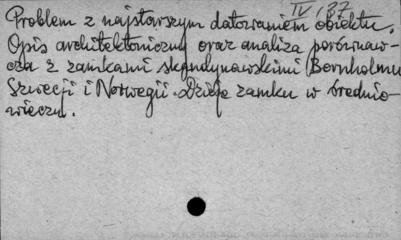 IV/37
Problem z najstarszym datowaniem obiektu.
Opis architektoniczny oraz analiza porównaw-
cza z zamkami skandynawskimi (Bornholmu
Szwecji i Norwegii. Dzieje zamku w średnio-
wieczu.